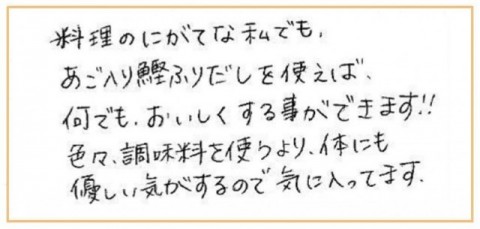 料理のにがてな私でも、
あご入り鰹ふりだしを使えば、
何でも、おいしくする事ができます!!
色々、調味料を使うより、体にも
優しい気がするので気に入ってます。